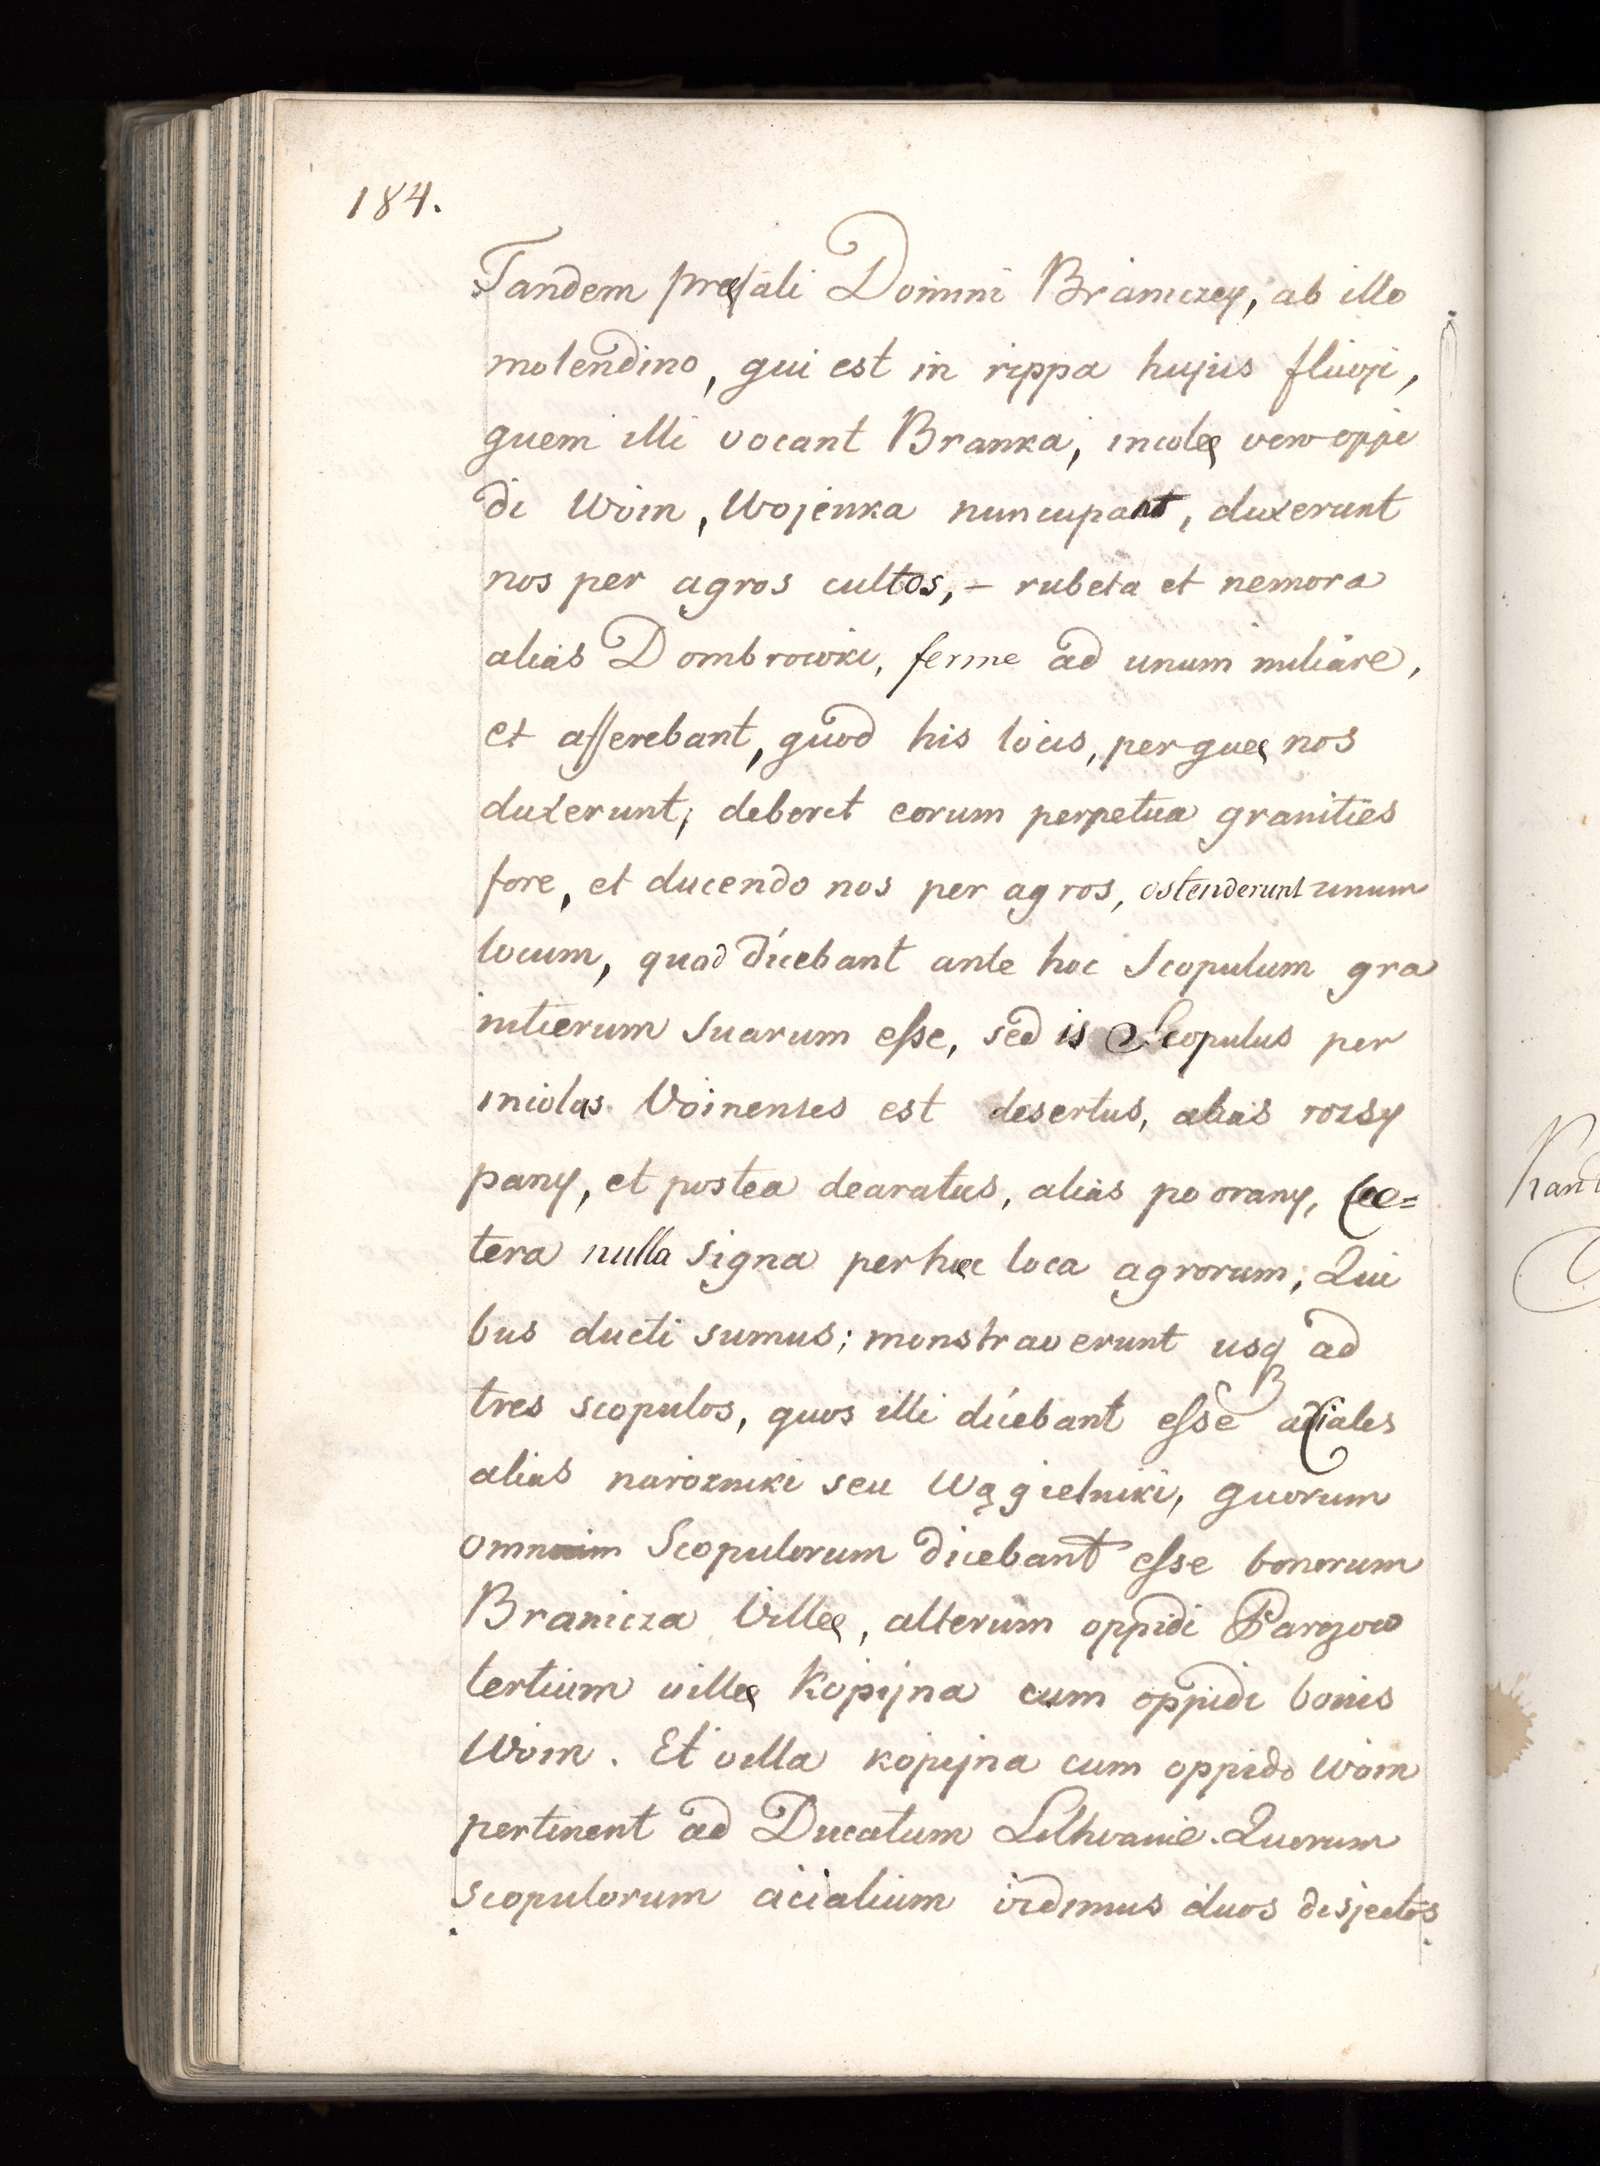 184.
Tandem præfati Domini Braniczey, ab illo
molendino, qui est in rippa hujus fluvji,
quem illi vocant Branka, incolæ vero oppi
di Woin, Wojenka nuncupant, duxerunt
nos per agros cultos, – rubeta et nemora
alias Dombrowki, ferme ad unum miliare,
et asserebant, quod his locis, per quæ nos
duxerunt, deberet eorum perpetua granities
fore, et ducendo nos per agros, ostenderunt unum
locum, quod dicebant ante hoc Scopulum gra
nitierum suarum esse, sed is Scopulus per
incolas Voinenses est desertus, alias rozsy
pany, et postea dearatus, alias po orany, Cæ=
tera nulla signa per hæc loca agrorum, Qui
bus ducti sumus; monstraverunt usq ad
tres scopulos, quos illi dicebant esse aciales
alias narozniki seu Wągielniki, quorum
omnium Scopulorum dicebant esse bonorum
Branicza Villæ, alterum oppidi Parczow
tertium villæ Kopijna cum oppidi bonis
Woin. Et villa kopijna cum oppido Woin
pertinent ad Ducatum Lithvanie. Quorum
scopulorum acialium vidimus duos disjectos